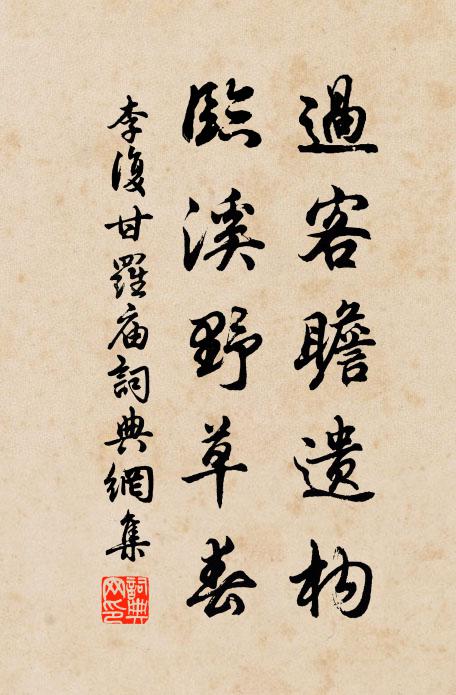 過客瞻遺構
臨溪野草春
李復甘羅庙詞典網集
詞典
网印